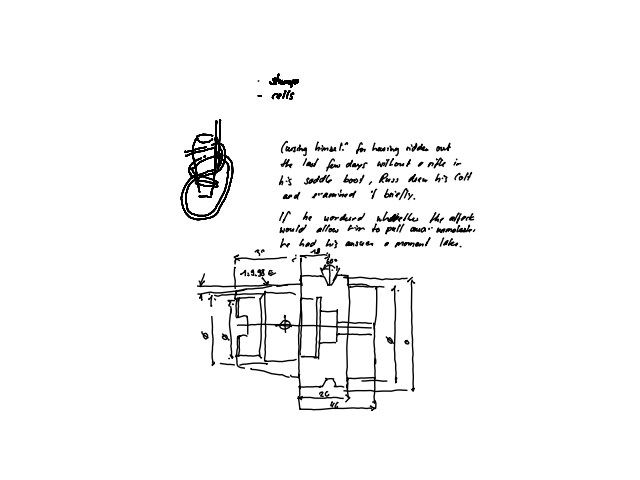 - stamps
- cells
Cursing himself for having ridden out
the last few days without a rifle in
his saddle boot, Russ drew his Colt
and examined it briefly.
If he wondered whether the affect
would allow him to pull away unmolested
he had his answer a moment later.
18
60°
1:9.98
26
46